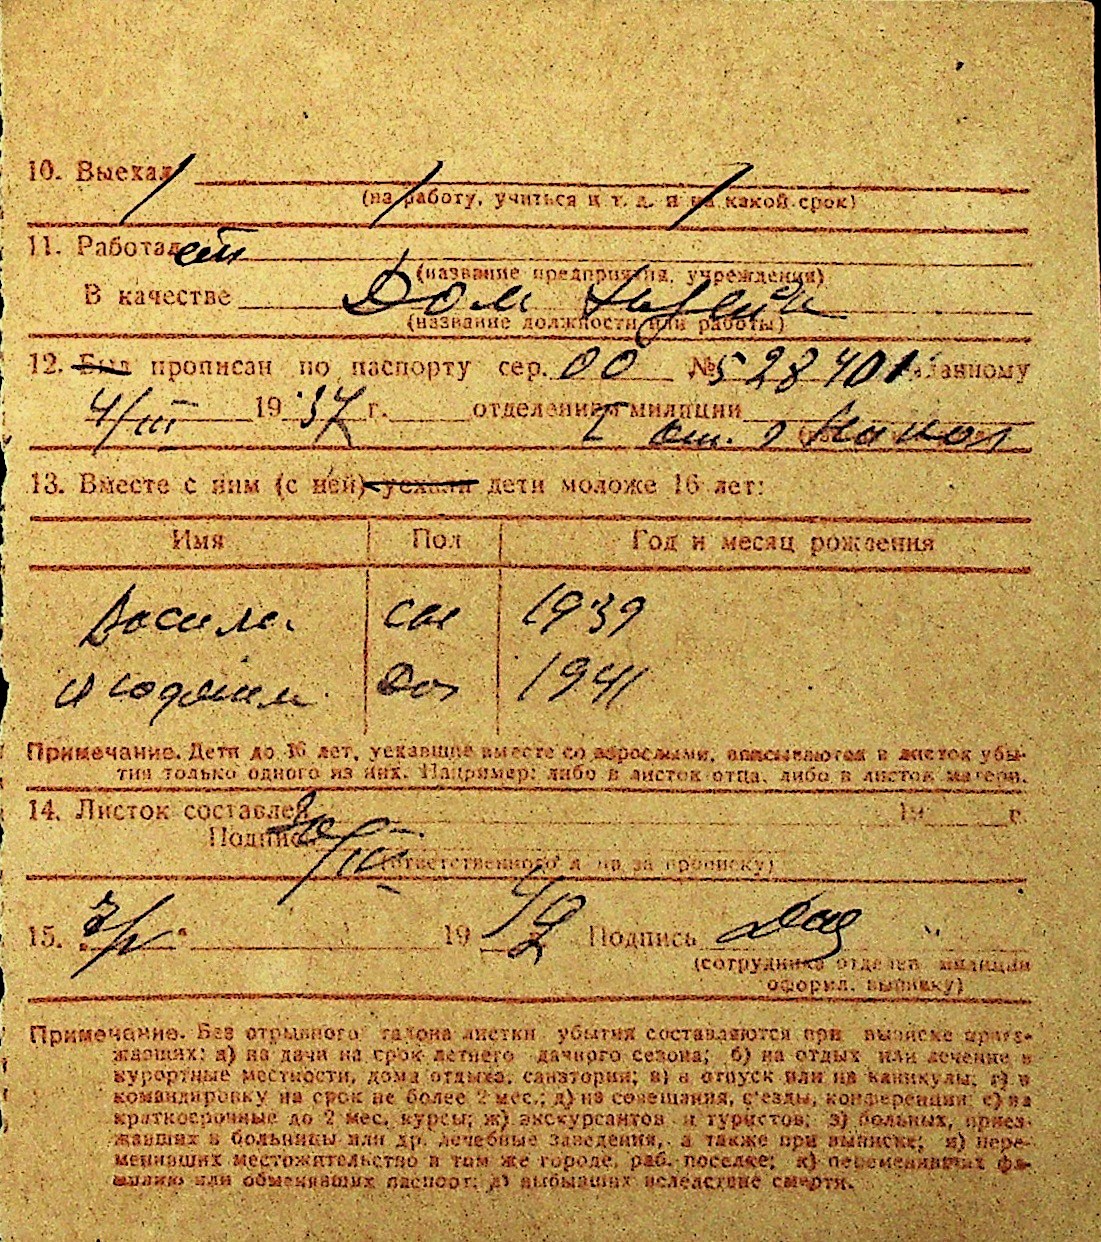 10. Выехал
(на работу, учиться и т. д. и на какой срок)
11. Работает
(название предприятия, учреждения)
В качестве Дом
(название должности или работы)
12. Был прописан по паспорту сер. ОО № 528401 выданному
4/III 1937 г. отделением милиции
13. Вместе с ним (с ней) уехали дети моложе 16 лет:
Имя Пол Год и месяц рождения
сын 1939
доч 1941
Примечание. Дети до 16 лет, уехавшие вместе со взрослыми, вписываются в листок убы-
тия только одного из них. Например: либо в листок отца, либо в листок матери.
14. Листок составлен 19 г.
Подпись
(ответственного л-ца за прописку)
15. 1942 Подпись
(сотрудника отделен. милиции
оформл. выписку)
Примечание. Без отрывного талона листки убытия составляются при выписке приез-
жавших: а) на дачи на срок летнего дачного сезона; б) на отдых или лечение в
курортные местности, дома отдыха, санатории; в) в отпуск или на каникулы; г) в
командировку на срок не более 2 мес.; д) на совещания, с'езды, конференции; е) на
краткосрочные до 2 мес. курсы; ж) экскурсантов и туристов; з) больных, приез-
жавших в больницы или др. лечебные заведения, а также при выписке; и) пере-
менивших местожительство в том же городе, раб. поселке; к) переменивших фа-
милию или обменявших паспорт; л) выбывших вследствие смерти.